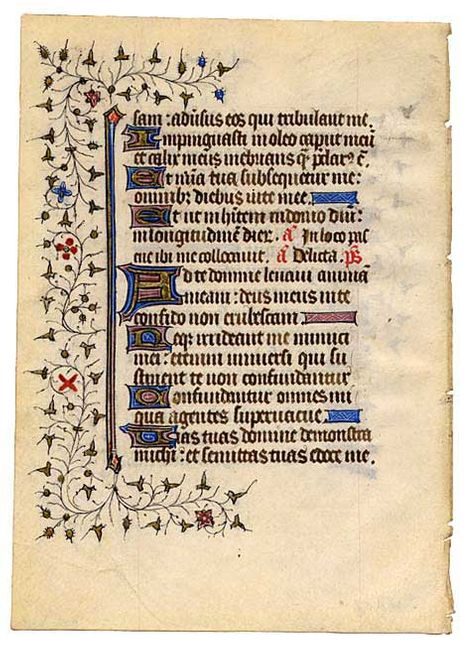 sam : adũsus eos qui tribulant me.
Inpinguasti in oleo caput meũ
et calix meus inebrians q̃ p̃clarꝰ ẽ.
Et mĩa tua subsequetur me :
omnibꝫ diebus uite mee.
Et ut inhĩtem in domo dñi :
in longitudinẽ dierꝝ. añ In loco pas
cue ibi me collocauit. añ Delicta. ps̃
Ad te domine leuaui animã
meam : deus meus in te
confido non erubescam
Neqꝫ irrideant me inimici
mei : etenim uniuersi qui su
stinent te non confundantur
Confundantur omnes ini
qua agentes superuacue
Uias tuas domine demonstra
michi : et semitas tuas edoce me.